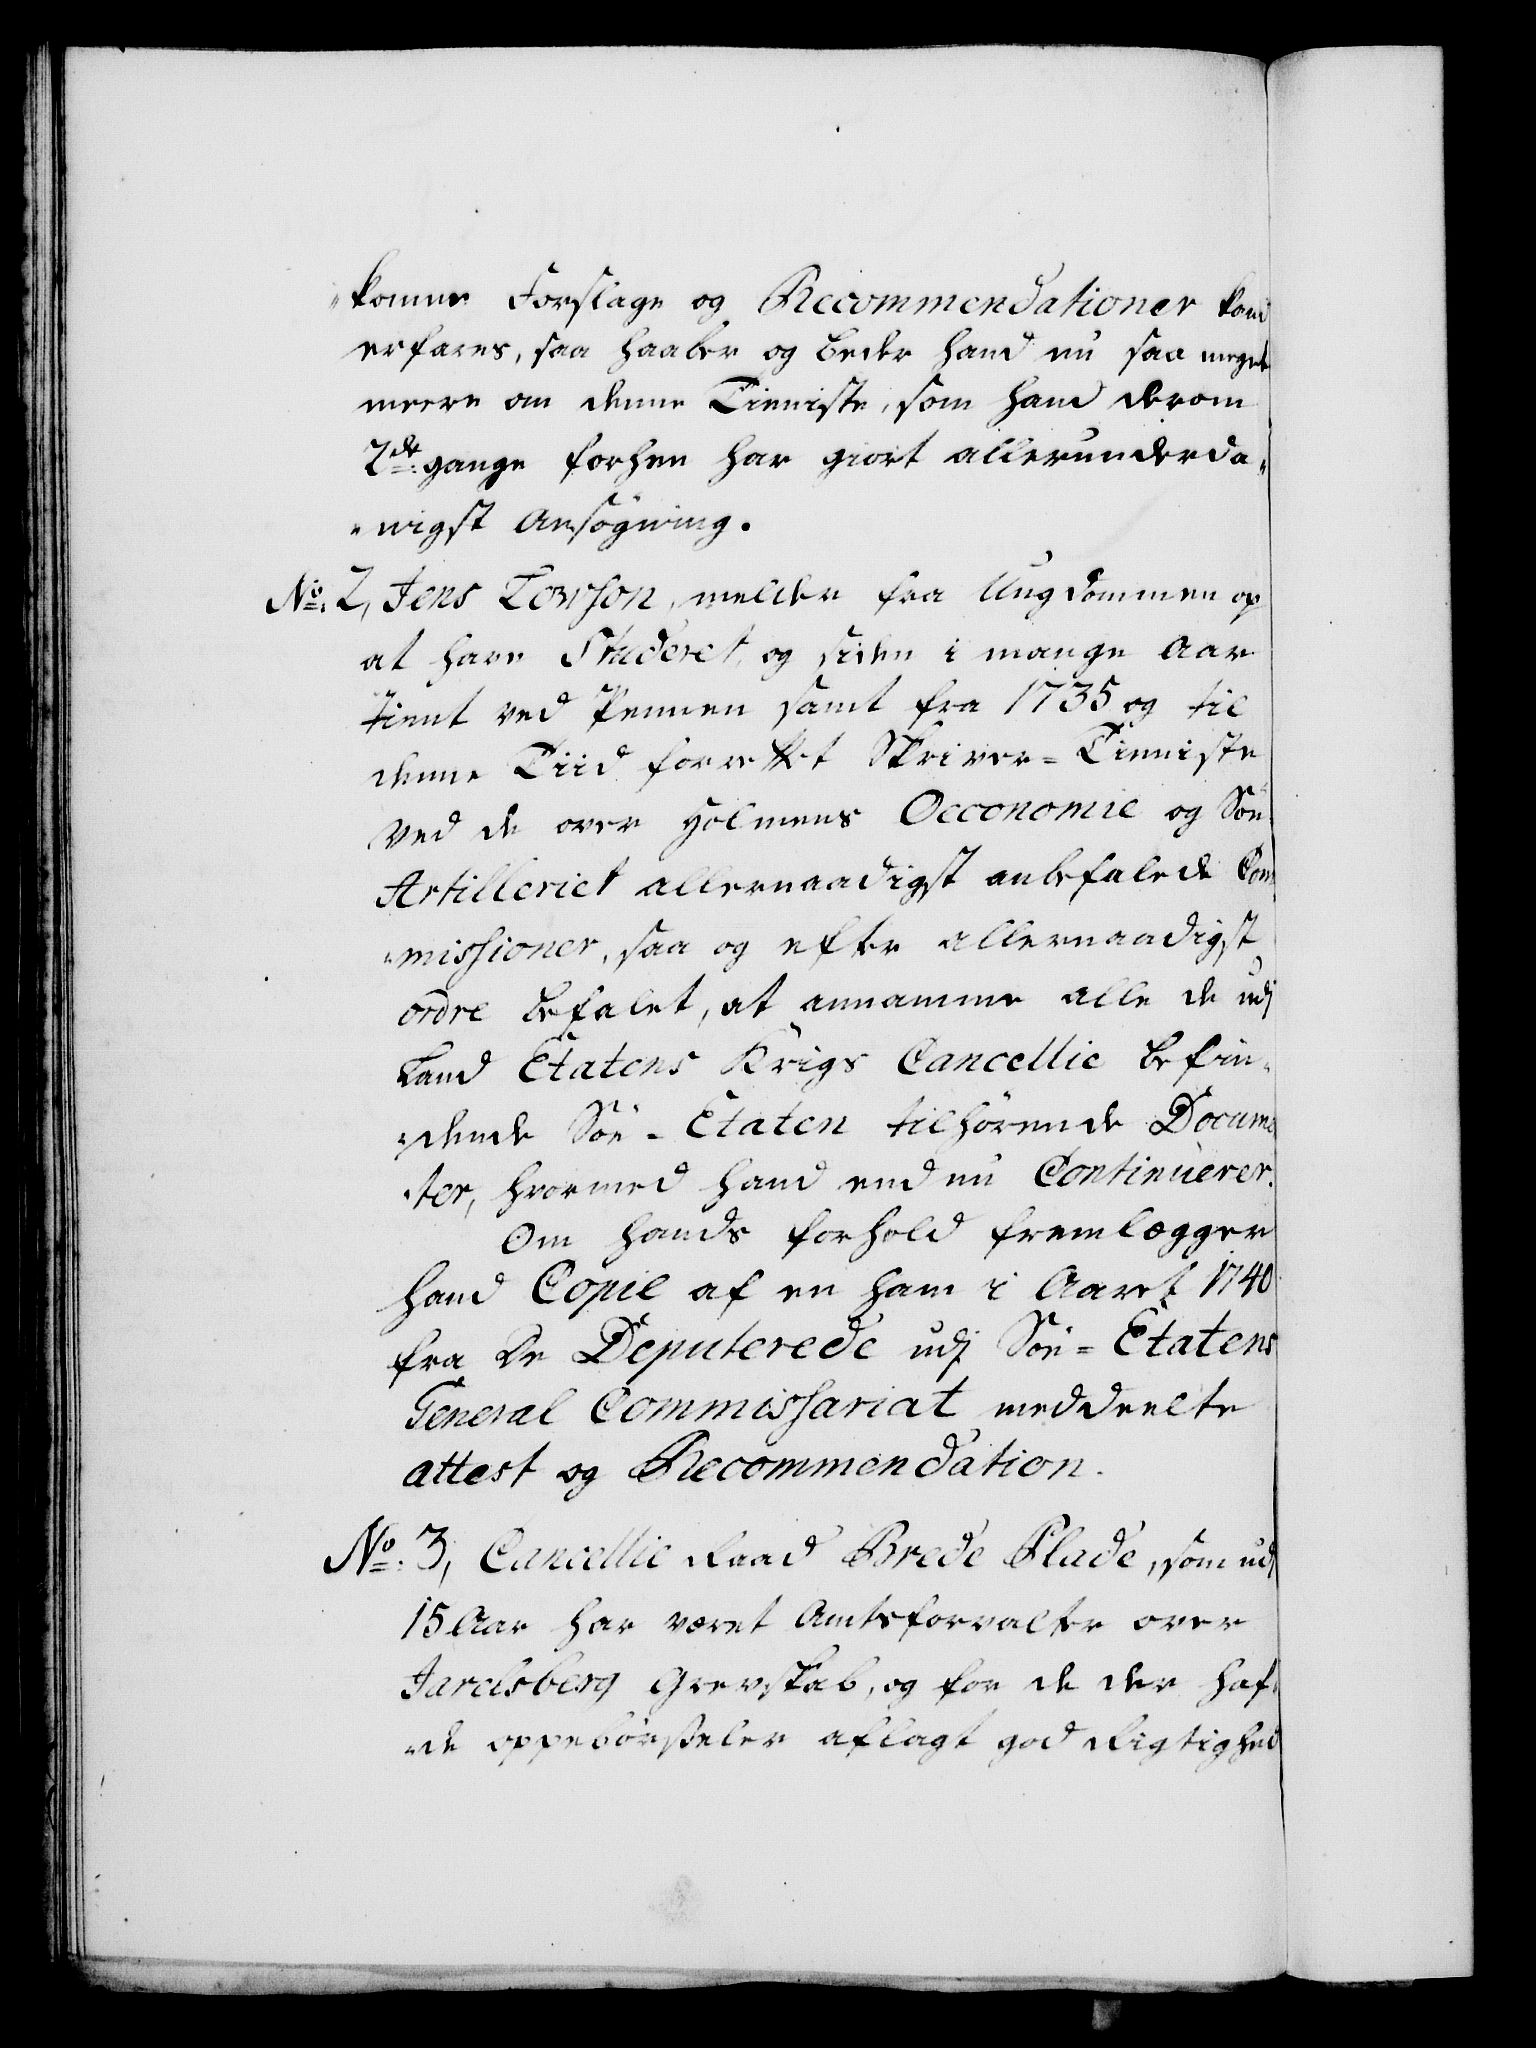 "komne Forslage og Recommendationer kand
erfares, saa haaber og beder hand nu saa meget
meere om denne Tieniste, som hand derom
2de: gange forhen har giort allerunderda„
„nigst Ansögning.
No: 2, Jens Towson, melder fra Ungdommen op
at have Studeret, og siden i mange Aar
tient ved Pennen samt fra 1735 og til
denne Tiid forrettet Skriver=Tieniste
ved de over Holmens Oeconomie og Söe
Artilleriet allernaadigst anbefalede Com
„missioner, saa og efter allernaadigst
ordre befalet, at annamme alle de udj
Land Etatens Krigs Cancellie befin„
„dende Söe-Etaten tilhörende Docume
„ter, hvormed hand end nu Continuerer.
Om hands forhold fremlegger
hand Copie af en ham i Aaret 1740
fra De Deputerede udj Söe=Etatens
General Commissariat meddeelte
attest og Recommendation.
No: 3, Cancellie Raad Brede Plade, som udj
15 Aar har været Amtsforvalter over
Jarlsberg Grevskab, og for de der haf„
„de oppebörseler aflagt god Rigtighed